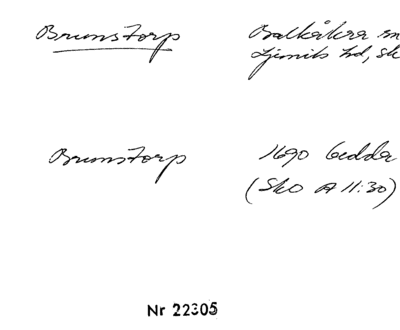 Brunstorp
Balkåkra sn
Ljunits hd, sk
Brunstorp
1690 Gedda
(SkO A 11:30)
Nr 22305